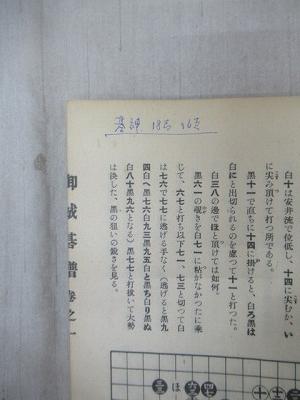 碁神 18才 16才
白十は安井流で位低し、十四に尖むか、い
に尖み頂けて打つ所である。
黒十一で直ちに十四に掛けると、白ろ黒は
白にと出切られるのを慮つて十一と打つた。
白三八の邊でほと頂けては如何。
黒六一の覗きを白七一に粘がなかつたに乘
じて、六七と打ち以下七一、七三と切つて白
は七六で七七に逃げる手なく（逃げると黒九
四白へ黒七六白九三黒九五白と黒ち白り黒ぬ
白八十黒九六となる）黒七七と打抜いて大勢
は決した、黒の狙いの鋭さを見る。
御城碁譜 卷之一
ほ